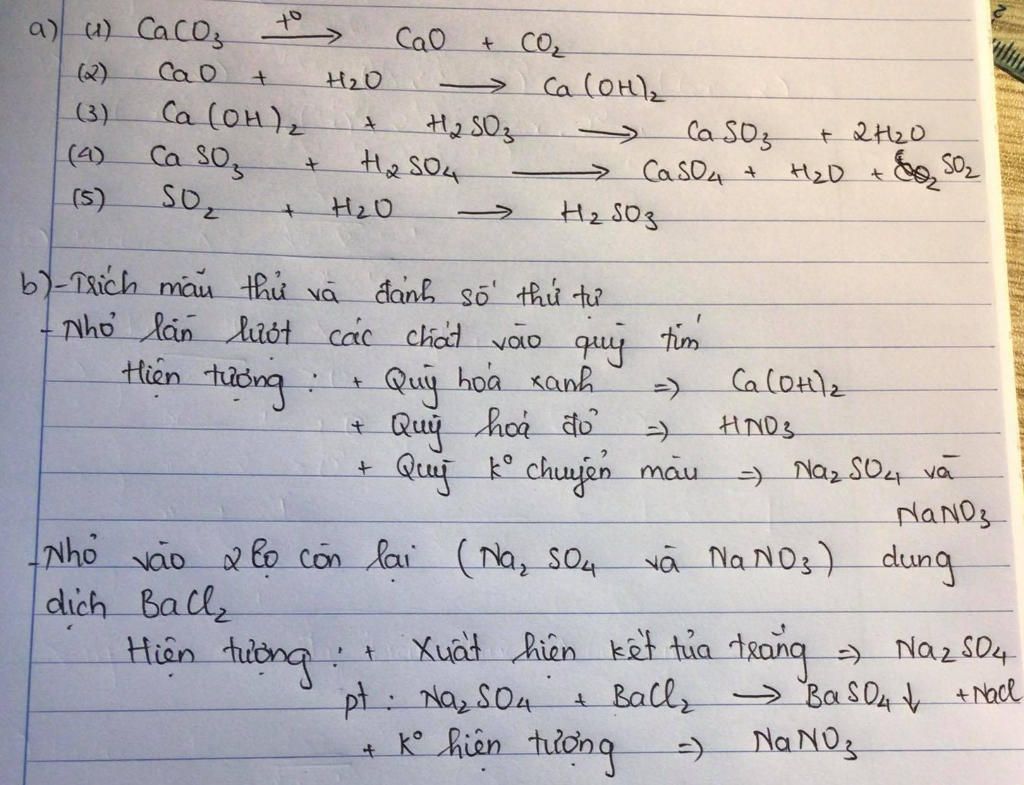 a) (1) CaCO3 t° → CaO + CO2
(2) CaO + H2O → Ca(OH)2
(3) Ca(OH)2 + H2SO3 → CaSO3 + 2H2O
(4) CaSO3 + H2SO4 → CaSO4 + H2O + SO2
(5) SO2 + H2O → H2SO3
b) - Trích mẫu thử và đánh số thứ tự
- Nhỏ lần lượt các chất vào quỳ tím
Hiện tượng : + Quỳ hoá xanh => Ca(OH)2
+ Quỳ hoá đỏ => HNO3
+ Quỳ k° chuyển màu => Na2SO4 và
NaNO3
- Nhỏ vào 2 lọ còn lại (Na2SO4 và NaNO3) dung
dịch BaCl2
Hiện tượng : + Xuất hiện kết tủa trắng => Na2SO4
pt : Na2SO4 + BaCl2 → BaSO4↓ + NaCl
+ K° hiện tượng => NaNO3